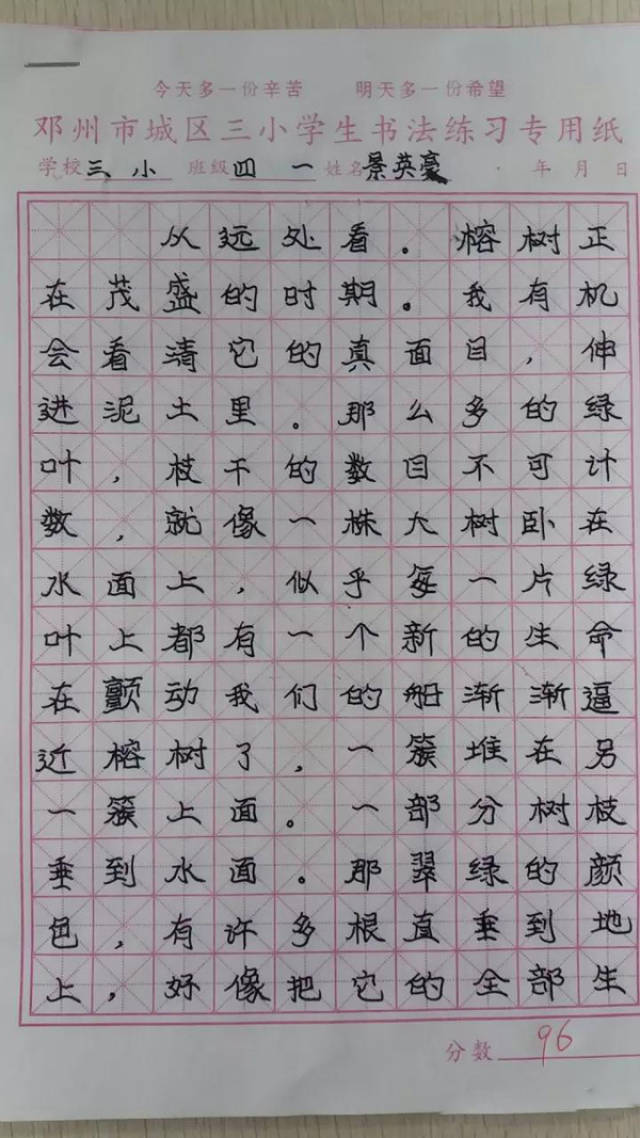 今天多一份辛苦 明天多一份希望
邓州市城区三小学生书法练习专用纸
学校三小 班级四一 姓名景英豪 年 月 日
从远处看。榕树正
在茂盛的时期。我有机
会看清它的真面目，伸
进泥土里。那么多的绿
叶，枝干的数目不可计
数，就像一株大树卧在
水面上，似乎每一片绿
叶上都有一个新的生命
在颤动我们的船渐渐逼
近榕树了，一簇堆在另
一簇上面。一部分树枝
垂到水面。那翠绿的颜
色，有许多根直垂到地
上，好像把它的全部生
分数 96